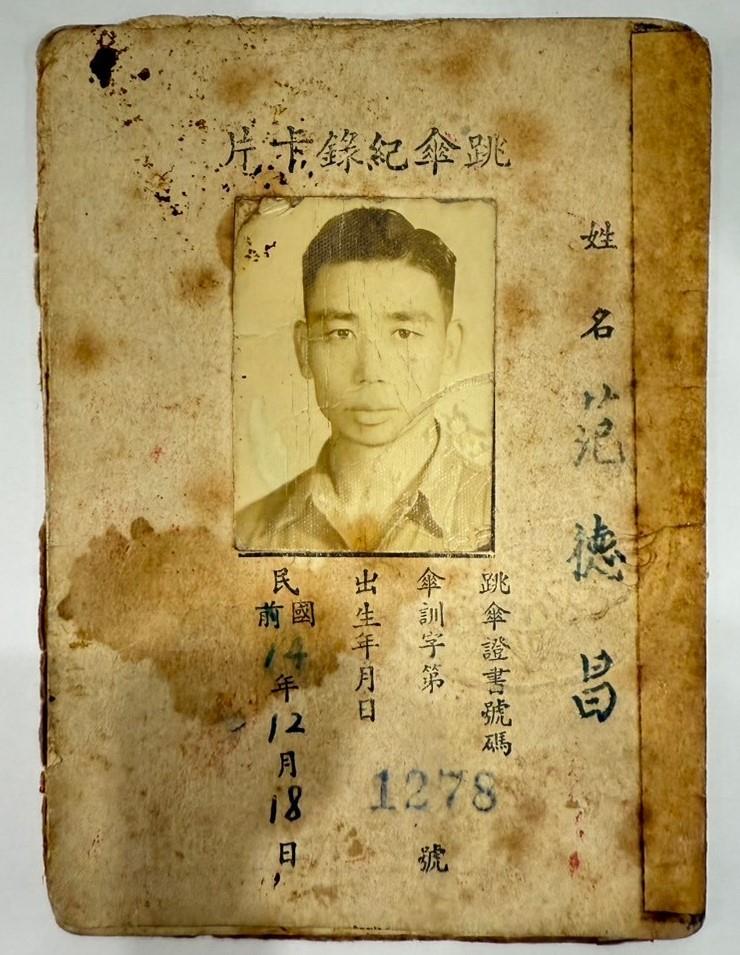 跳傘紀錄卡片
姓名 范德昌
跳傘證書號碼
傘訓字第1278號
出生年月日
民國前14年12月18日